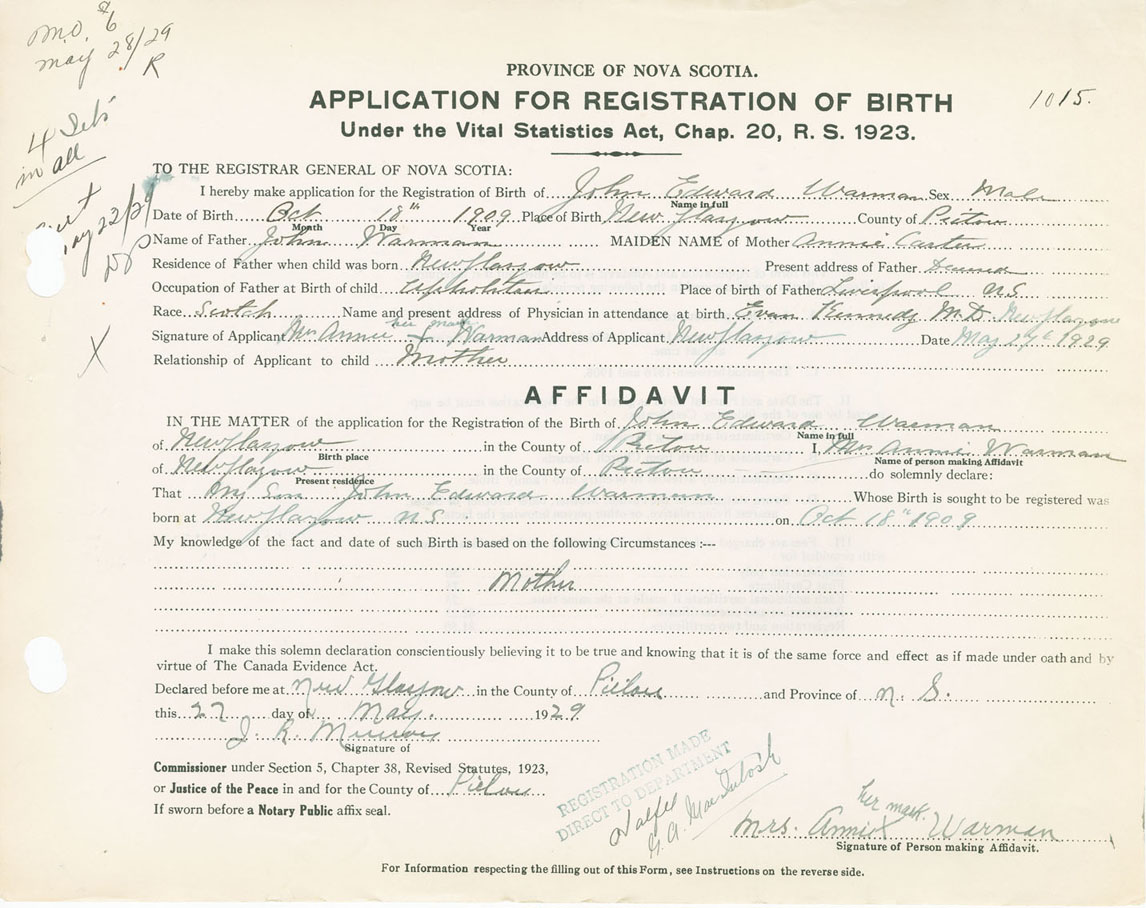 M.O. $6
May 28/29
R
PROVINCE OF NOVA SCOTIA.
APPLICATION FOR REGISTRATION OF BIRTH
1015.
Under the Vital Statistics Act, Chap. 20, R. S. 1923.
4
in all
TO THE REGISTRAR GENERAL OF NOVA SCOTIA:
I hereby make application for the Registration of Birth of John Edward Warman Sex Male
Name in full
May 22/29
Date of Birth Oct 18th 1909 Place of Birth New Glasgow County of Pictou
Month Day Year
Name of Father John Warman MAIDEN NAME of Mother Annie Carter
Residence of Father when child was born New Glasgow Present address of Father
Occupation of Father at Birth of child Place of birth of Father Liverpool NS
Race Scotch Name and present address of Physician in attendance at birth Evan Kennedy M.D. New Glasgow
her mark
Signature of Applicant Mrs Annie X Warman Address of Applicant New Glasgow Date May 27th 1929
X
Relationship of Applicant to child Mother
AFFIDAVIT
IN THE MATTER of the application for the Registration of the Birth of John Edward Warman
Name in full
of New Glasgow in the County of Pictou I, Mrs Annie Warman
Birth place Name of person making Affidavit
of New Glasgow in the County of Pictou do solemnly declare:
Present residence
That My Son John Edward Warman Whose Birth is sought to be registered was
born at New Glasgow NS on Oct 18th 1909
My knowledge of the fact and date of such Birth is based on the following Circumstances :---
Mother
I make this solemn declaration conscientiously believing it to be true and knowing that it is of the same force and effect as if made under oath and by
virtue of The Canada Evidence Act.
Declared before me at New Glasgow in the County of Pictou and Province of N. S.
this 27 day of May. 1929
J. R. Murray
Signature of
Commissioner under Section 5, Chapter 38, Revised Statutes, 1923,
or Justice of the Peace in and for the County of Pictou
If sworn before a Notary Public affix seal.
REGISTRATION MADE
DIRECT TO DEPARTMENT
Halifax
G. A. MacIntosh
her mark.
Mrs. Annie X Warman
Signature of Person making Affidavit.
For Information respecting the filling out of this Form, see Instructions on the reverse side.